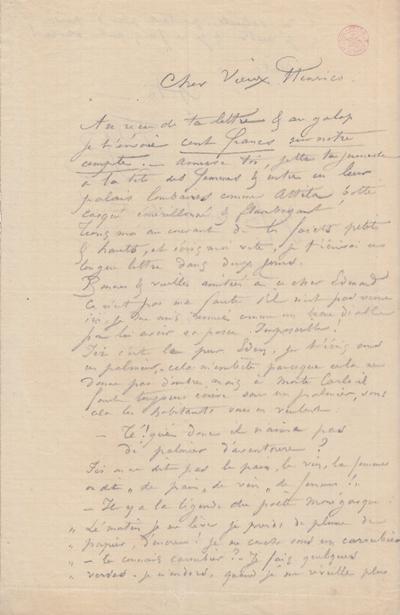 Cher Vieux Henrico.
Au reçu de ta lettre & au galop
je t'envoie cent francs sur notre
compte. — Amuse toi, jette ta jeunesse
à la tête des femmes & entre en leur
palais lombaires comme Attila, botté
casqué & flamboyant!
Tiens moi au courant de tes faits petits
& hauts, et écris moi vite, je t'écrirai une
longue lettre dans deux jours.
Bonnes & vieilles amitiés à ce cher Edouard
ce n'est pas ma faute s'il n'est pas venu
ici, je me suis comme un beau diable
pour lui avoir sa passe. Impossible!
Ici c'est le pur Eden, je t'écris sous
un palmier, cela m'embête parceque cela ne
donne pas d'ombre, mais à Monte Carlo il
faut toujours écrire sous un palmier, sans
cela les habitants vous en veulent.
— Té! qué donc il n'aime pas
dé palmier d'aventoure?
Ici on ne dit pas le pain, le vin, les femmes
on dit „ de pain, de vin, de femme!"
— Il y a la légende du poète monégasque.
„ Le matin je me lève je prends de plume de
„ papier, d'encre! je me couche sous un caroubier
„ — tu connais caroubier? — Je fais quelques
verses. je m'endors, quand je me réveille plus